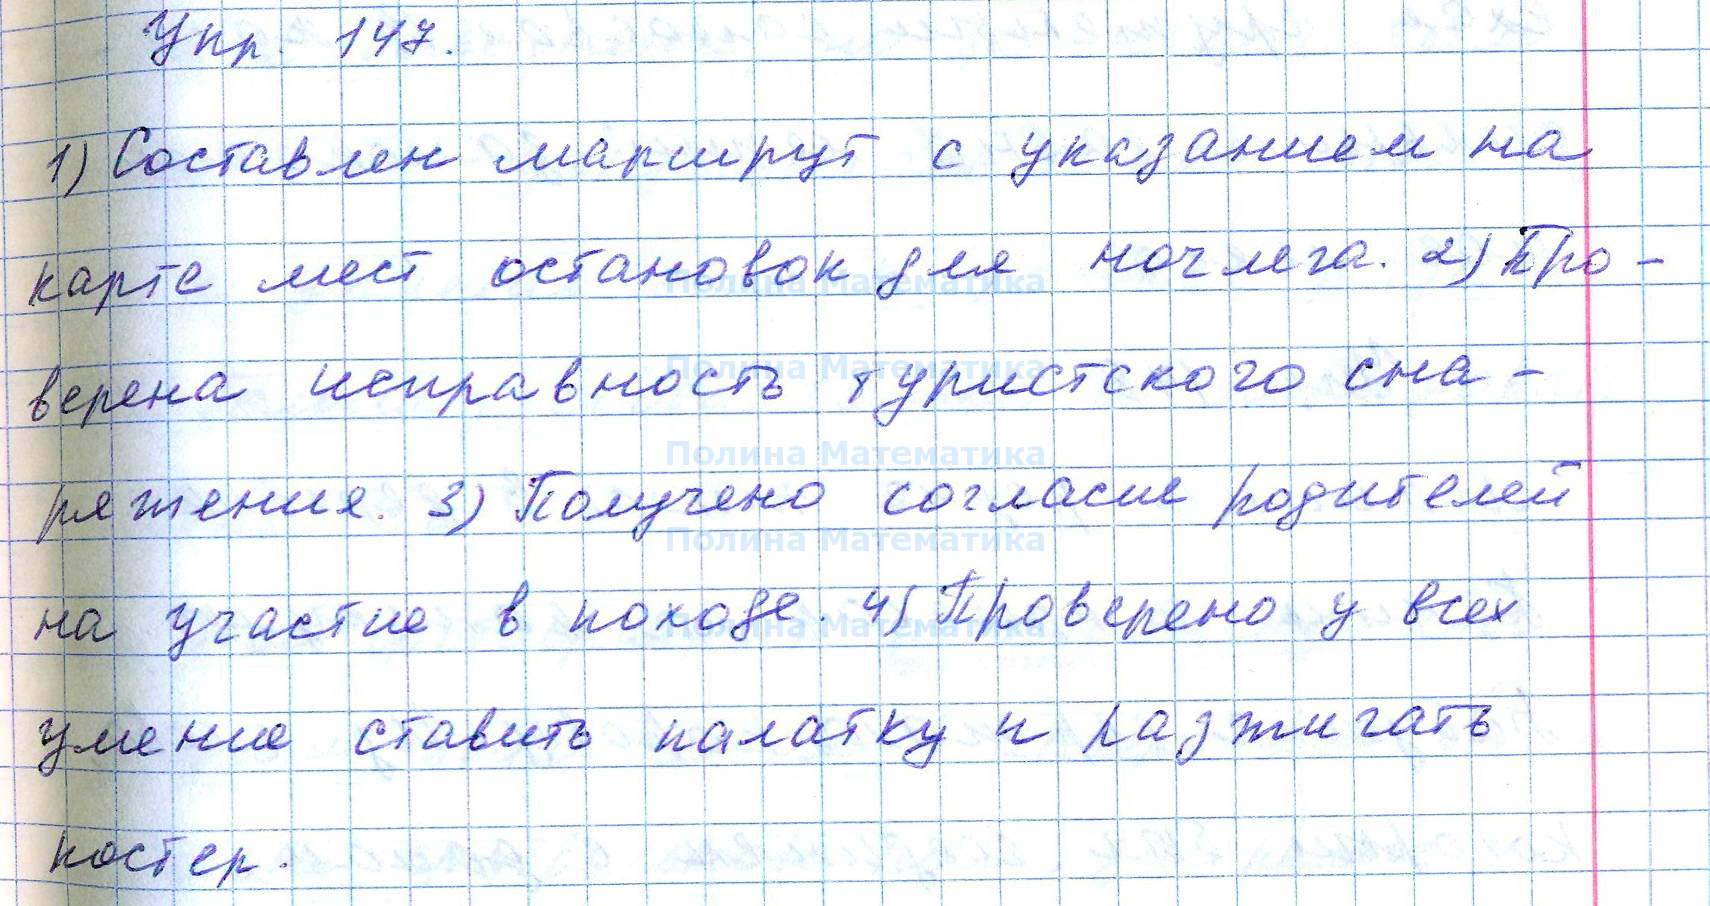 Упр 147.
1) Составлен маршрут с указанием на
карте мест остановок для ночлега. 2) Про-
Полина Математика
верена исправность туристского сна-
Полина Математика
Полина Математика
ряжения. 3) Получено согласие родителей
Полина Математика
на участие в походе. 4) Проверено у всех
Полина Математика
умение ставить палатку и разжигать
костер.